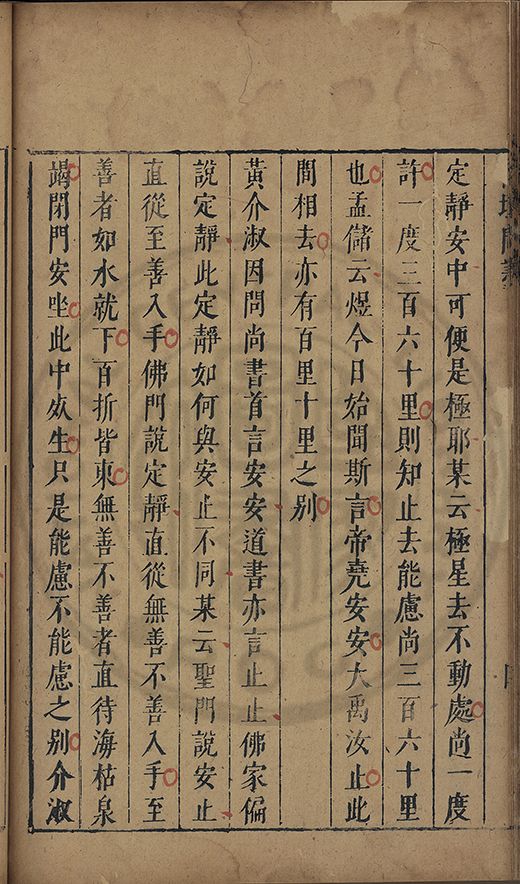 定靜安中可便是極耶某云極星去不動處尚一度
許一度三百六十里則知止去能慮尚三百六十里
也孟儲云煜今日始聞斯言帝堯安安大禹汝止此
間相去亦有百里十里之别
黃介淑因問尚書首言安安道書亦言止止佛家偏
說定靜此定靜如何與安止不同某云聖門說安止
直從至善入手佛門說定靜直從無善不善入手至
善者如水就下百折皆東無善不善者直待海枯泉
竭閉門安坐此中处生只是能慮不能慮之别介淑